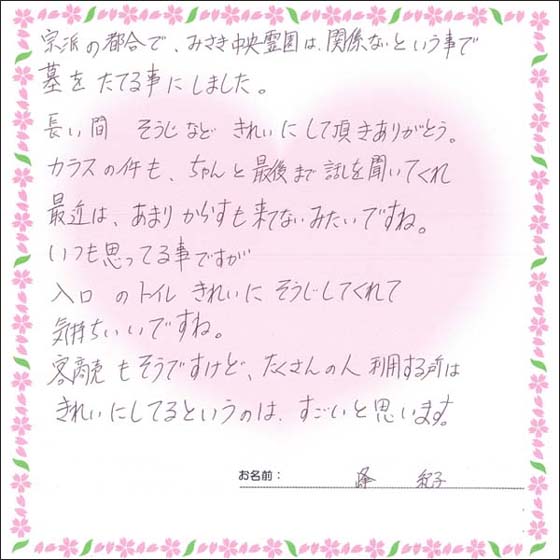 宗派の都合で、みさき中央霊園は、関係ないという事で
墓をたてる事にしました。
長い間 そうじなど きれいにして頂きありがとう。
カラスの件も、ちゃんと最後まで話しを聞いてくれ
最近は、あまりからすも来てないみたいですね。
いつも思ってる事ですが
入口のトイレ きれいに そうじしてくれて
気持ちいいですね。
客商売もそうですけど、たくさんの人 利用する所は
きれいにしてるというのは、すごいと思います。
お名前: 紀子